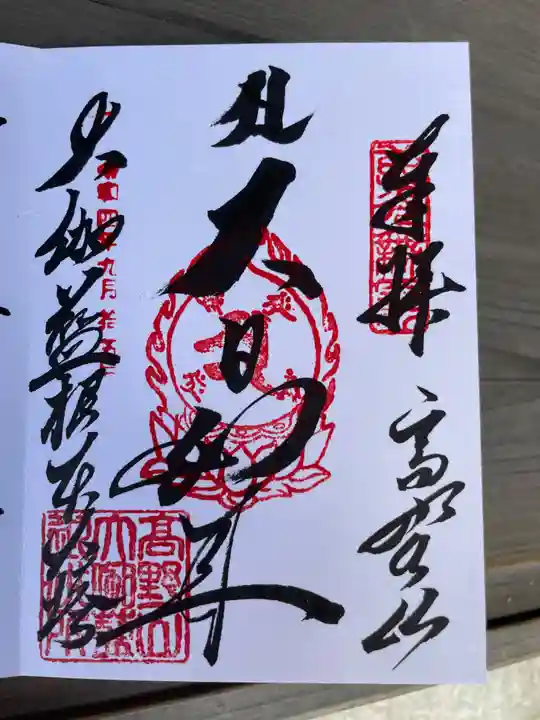 奉拝 高野山
大日如来
大伽藍根本大塔
令和四年九月拾五日
高野山